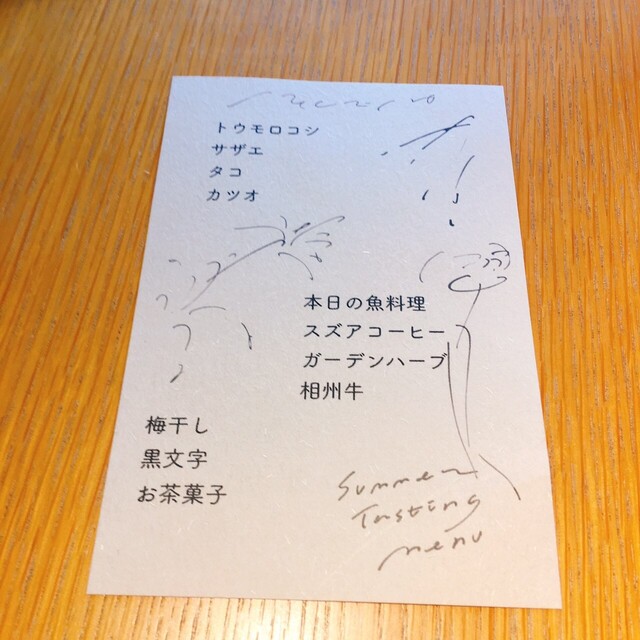 トウモロコシ
サザエ
タコ
カツオ
本日の魚料理
スズアコーヒー
ガーデンハーブ
相州牛
梅干し
黒文字
お茶菓子
Summer
Tasting
menu